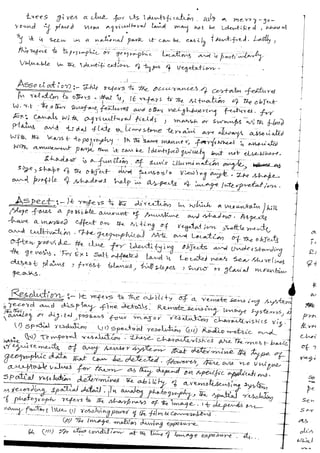 trees gives a clue for its identification, as a merry-go-
round if placed near agricultural land may not be identified,
if it is seen in a national park it can be easily identified. Lastly,
this refers to topographic or geographic locations and is particularly
valuable in the identification of types of vegetation.
Association :- This refers to the occurances of certain features
in relation to others. that is, it refers to the situation of the object
w.r.t. to other surface features and other neighbouring features. for
Ex: canals with agricultural fields, marsh or swamps with flood
plains and tidal flats or limestone terrain are always associated
with the karst topography. In the same manner, is associated
with amusement park, can it can be identified quickly but not elsewhere.
Shadow is a function of sun's illumination angle,
size, shape of the object and sensor's viewing angle. The shape
and profile of shadows help in aspects of image interpretation.
Aspect :- It refers to the direction in which a mountain hill
slope faces a possible amount of sunshine and shadow. Aspects
have a marked effect on the siting of vegetation settlements
and cultivation. The geographical site and location of the objects
often provide the clue for identifying objects and understanding
the genesis. For Ex: salt affected land is located near sea shorelines
desert plains : forest blanks, hill slopes : snow or glacial mountain
peaks.
Resolution :- It refers to the ability of a remote sensing system
to record and display fine details. Remote sensing image systems,
analog or digital, possess four major resolution characteristics viz.
(i) spatial resolution (ii) spectral resolution (iii) Radiometric and
(iv) Temporal resolution. These characteristics are the most basic
requirements of any sensor system that determine the type of
geographic data that can be detected. However, there are no unique
acceptable values for them as they depend on specific applications.
Spatial resolution determines the ability of a remote sensing system
in recording spatial detail. In analog photography, the spatial resolution
of photographs refers to the sharpness of the image. It depends on
many factors like (i) resolving power of the film & camera lens
(ii) The image motion during exposure
& (iii) The atm condition at the time of image exposure.